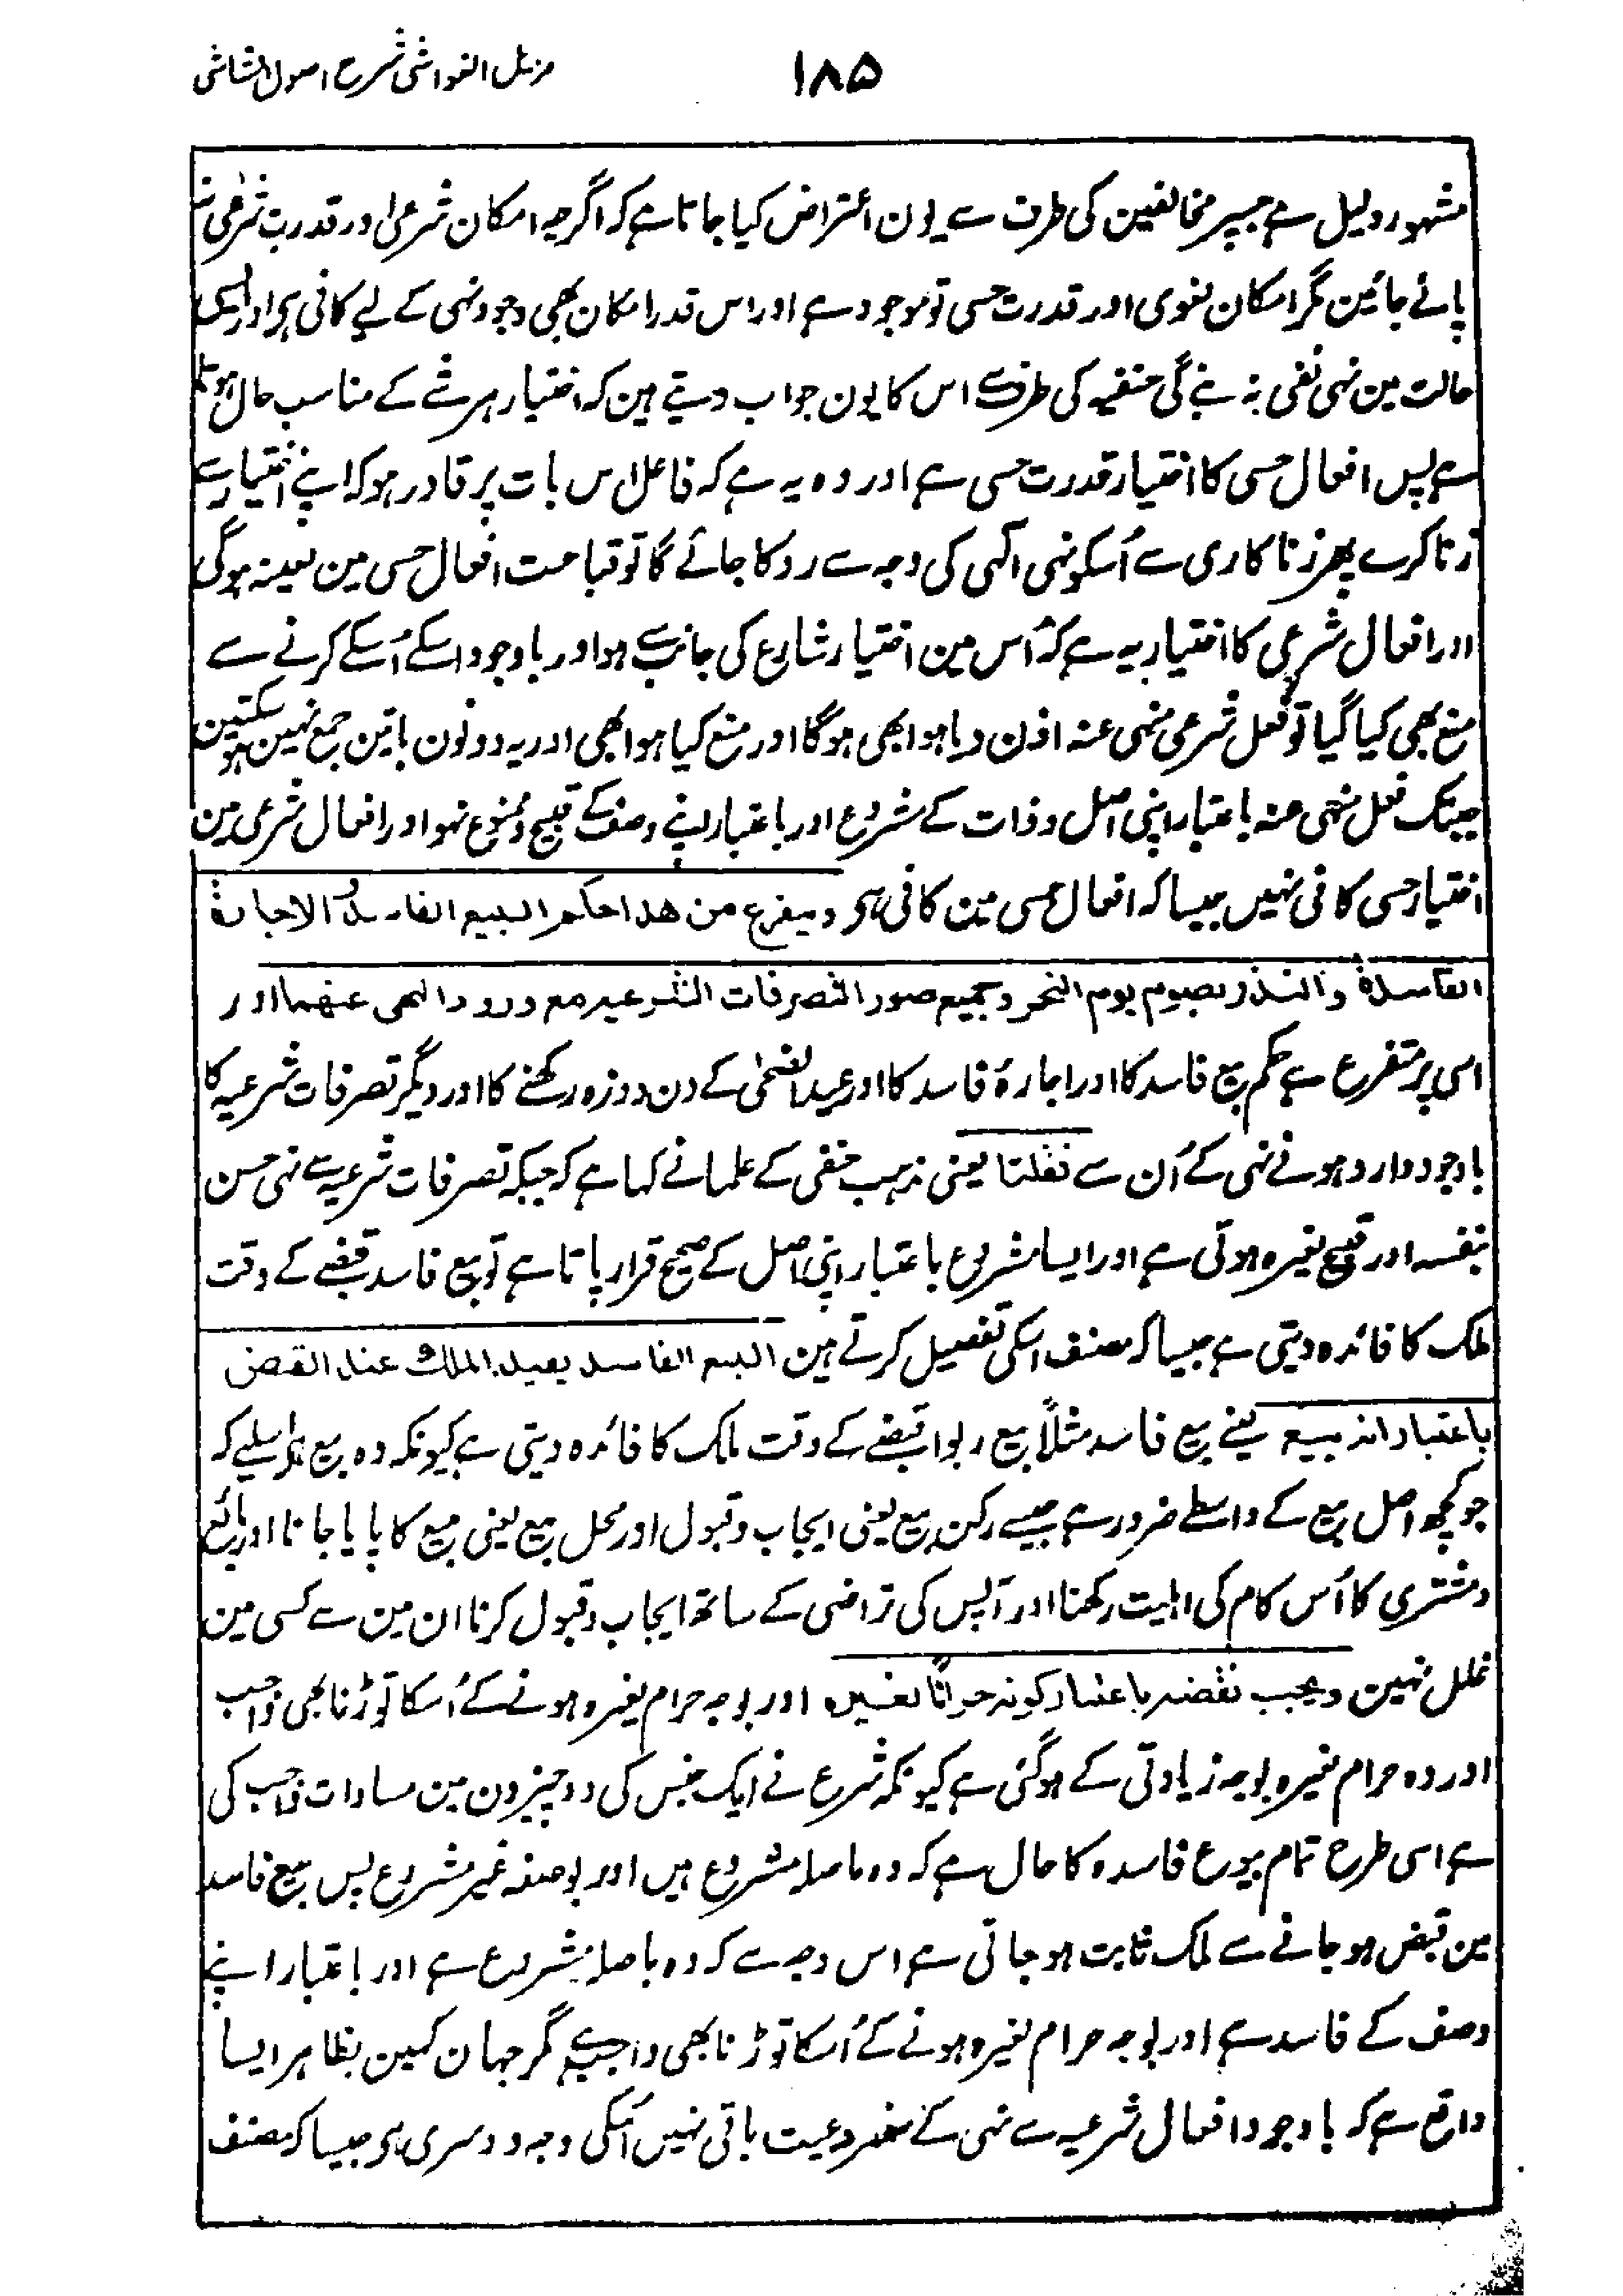 ۱۸۵
مزیل الغواشی شرح اصول الشاشی
مشہور دلیل ہے جسپر مخالفین کی طرف سے یون اعتراض کیا جاتا ہے کہ اگرچہ امکان شرعی اور قدرت شرعی نہ
پائے جائین مگر امکان لغوی اور قدرت حسی تو موجود ہے اور اس قدر امکان بھی وجود نہی کے لیے کافی ہی اور ایسی
حالت مین نہی نفی نہ بنے گی حنفیہ کی طرف سے اس کا یون جواب دیتے ہین کہ اختیار ہر شے کے مناسب حال ہوتا
ہے پس افعال حسی کا اختیار قدرت حسی ہے اور وہ یہ ہے کہ فاعل اس بات پر قادر ہو کہ اپنے اختیار سے
زنا کرے پھر زنا کاری سے اُسکو نہی الٰہی کی وجہ سے روکا جائے گا تو قباحت افعال حسی مین بعینہ ہوگی
اور افعال شرعی کا اختیار یہ ہے کہ اُس مین اختیار شارع کی جانب سے ہو اور باوجود اسکے اُسکے کرنے سے
منع بھی کیا گیا تو فعل شرعی منہی عنہ اذن دیا ہوا بھی ہوگا اور منع کیا ہوا بھی اور یہ دونون باتین جمع نہین ہو سکتین
جبتک فعل منہی عنہ باعتبار اپنی اصل و ذات کے مشروع اور باعتبار اپنے وصف کے قبیح و ممنوع نہو اور افعال شرعی مین
اختیار حسی کافی نہیں جیسا کہ افعال حسی مین کافی ہی ویتفرع من هذا حکم البیع الفاسد والاجارة
الفاسدة والنذر بصوم یوم النحر وجمیع صور التصرفات الشرعیه مع ورود النهی عنهما اور
اسی پر متفرع ہے حکم بیع فاسد کا اور اجارہ فاسد کا اور عید الضحٰی کے دن روزہ رکھنے کا اور دیگر تصرفات شرعیہ کا
باوجود وارد ہونے نہی کے اُن سے فقلنا یعنی مذہب حنفی کے علما نے کہا ہے کہ جبکہ تصرفات شرعیہ سے نہی حسن
بنفسہ اور قبیح لغیرہ ہوتی ہے اور ایسا مشروع باعتبار اپنی اصل کے صحیح قرار پاتا ہے تو بیع فاسد قبضے کے وقت
ملک کا فائدہ دیتی ہے جیسا کہ مصنف اسکی تفصیل کرتے ہین البیع الفاسد یفید الملک عند القبض
باعتبار انہ بیع یعنے بیع فاسد مثلاً بیع ربوا قبضے کے وقت ملک کا فائدہ دیتی ہے کیونکہ وہ بیع ہی اسلیے کہ
جو کچھ اصل بیع کے واسطے ضرور ہے جیسے رکن بیع یعنی ایجاب و قبول اور محل بیع یعنی مبیع کا پایا جانا اور بائع
و مشتری کا اُس کام کی اہلیت رکھنا اور آپس کی تراضی کے ساتھ ایجاب و قبول کرنا ان مین سے کسی مین
خلل نہین ویجب نقضہ باعتبار کونہ حراماً لغیرہ اور بوجہ حرام لغیرہ ہونے کے اُسکا توڑنا بھی واجب
اور وہ حرام لغیرہ بوجہ زیادتی کے ہوگئی ہے کیونکہ شرع نے ایک جنس کی دو چیزون مین مساوات واجب کی
ہے اسی طرح تمام بیوع فاسدہ کا حال ہے کہ وہ باصلہ مشروع ہیں اور بوصفہ غیر مشروع پس بیع فاسد
مین قبض ہو جانے سے ملک ثابت ہو جاتی ہے اس وجہ سے کہ وہ باصلہ مشروع ہے اور باعتبار اپنے
وصف کے فاسد ہے اور بوجہ حرام لغیرہ ہونے کے اُسکا توڑنا بھی واجب ہے مگر جہان کہین بظاہر ایسا
واقع ہے کہ باوجود افعال شرعیہ سے نہی کے مشروعیت باقی نہیں اُسکی وجہ دوسری ہی جیسا کہ مصنف